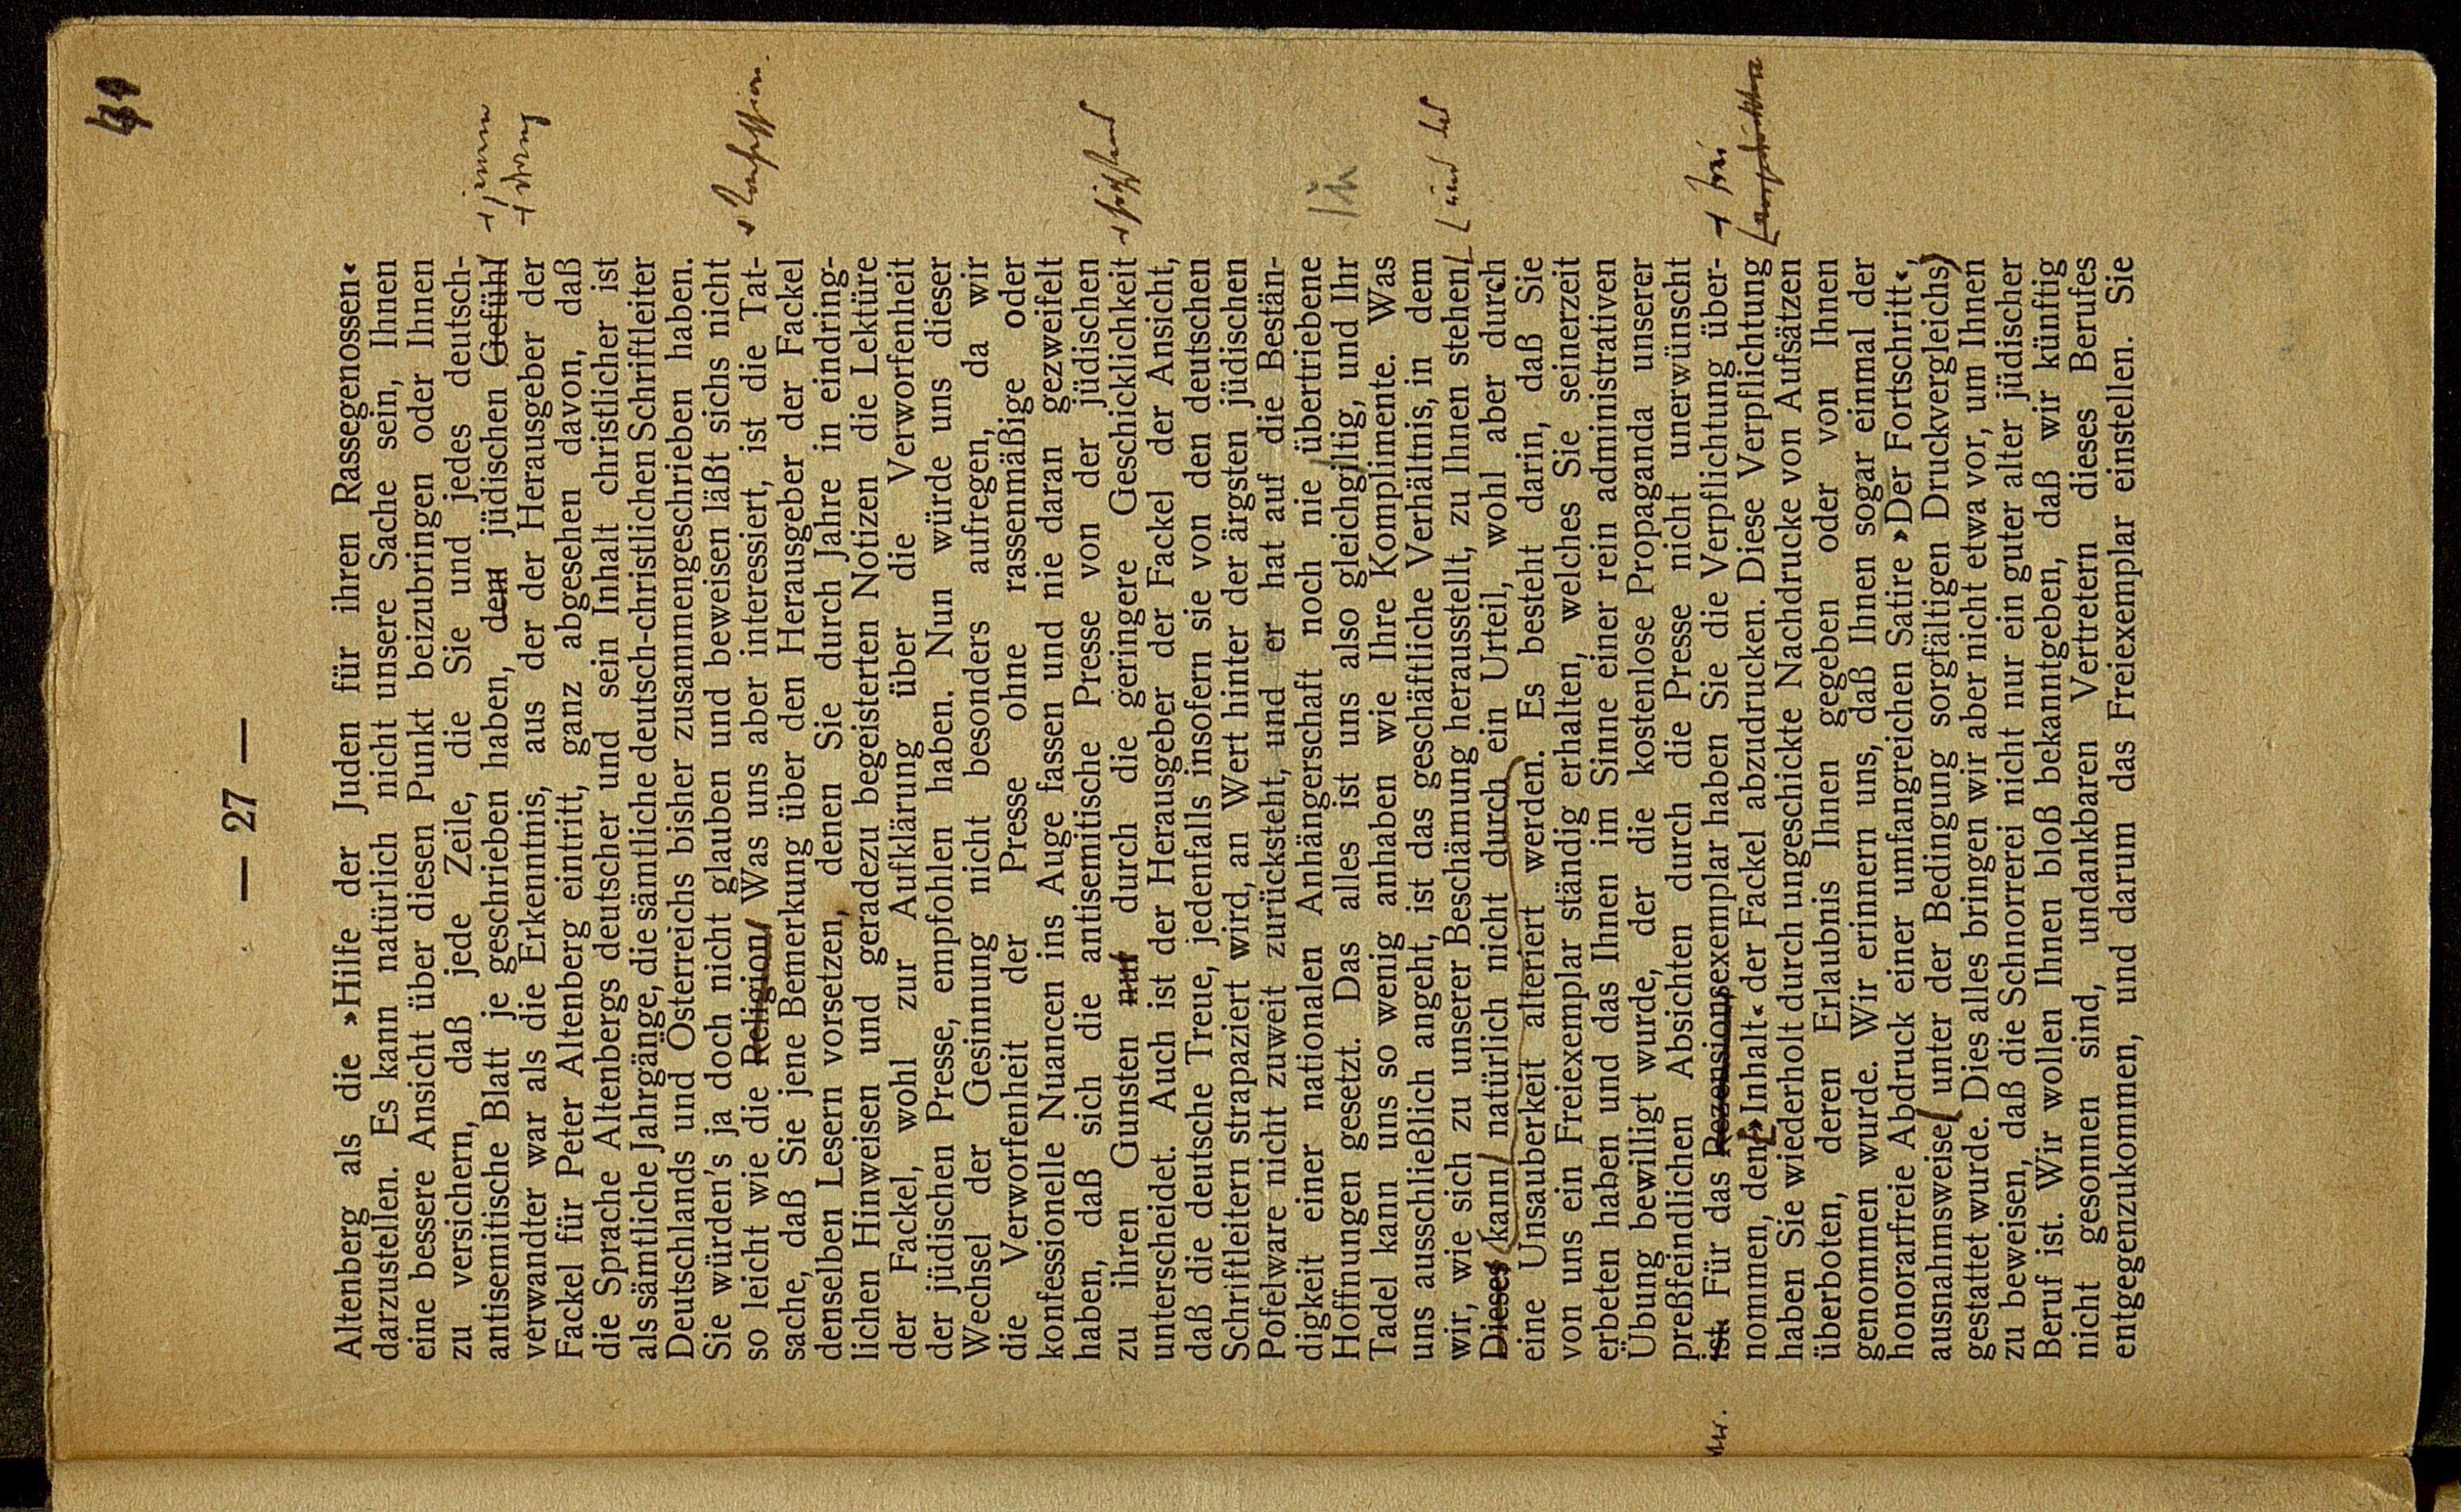 — 27 —
Altenberg als die »Hilfe der Juden für ihren Rassegenossen«
darzustellen. Es kann natürlich nicht unsere Sache sein, Ihnen
eine bessere Ansicht über diesen Punkt beizubringen oder Ihnen
zu versichern, daß jede Zeile, die Sie und jedes deutsch-
antisemitische Blatt je geschrieben haben, dem jüdischen Gefühl
verwandter war als die Erkenntnis, aus der der Herausgeber der
Fackel für Peter Altenberg eintritt, ganz abgesehen davon, daß
die Sprache Altenbergs deutscher und sein Inhalt christlicher ist
als sämtliche Jahrgänge, die sämtliche deutsch-christlichen Schriftleiter
Deutschlands und Österreichs bisher zusammengeschrieben haben.
Sie würden's ja doch nicht glauben und beweisen läßt sichs nicht
so leicht wie die Religion. Was uns aber interessiert, ist die Tat-
sache, daß Sie jene Bemerkung über den Herausgeber der Fackel
denselben Lesern vorsetzen, denen Sie durch Jahre in eindring-
lichen Hinweisen und geradezu begeisterten Notizen die Lektüre
der Fackel, wohl zur Aufklärung über die Verworfenheit
der jüdischen Presse, empfohlen haben. Nun würde uns dieser
Wechsel der Gesinnung nicht besonders aufregen, da wir
die Verworfenheit der Presse ohne rassenmäßige oder
konfessionelle Nuancen ins Auge fassen und nie daran gezweifelt
haben, daß sich die antisemitische Presse von der jüdischen
zu ihren Gunsten nur durch die geringere Geschicklichkeit
unterscheidet. Auch ist der Herausgeber der Fackel der Ansicht,
daß die deutsche Treue, jedenfalls insofern sie von den deutschen
Schriftleitern strapaziert wird, an Wert hinter der ärgsten jüdischen
Pofelware nicht zuweit zurücksteht, und er hat auf die Bestän-
digkeit einer nationalen Anhängerschaft noch nie übertriebene
Hoffnungen gesetzt. Das alles ist uns also gleichgiltig, und Ihr
Tadel kann uns so wenig anhaben wie Ihre Komplimente. Was
uns ausschließlich angeht, ist das geschäftliche Verhältnis, in dem
wir, wie sich zu unserer Beschämung herausstellt, zu Ihnen stehen.
Dieses kann natürlich nicht durch ein Urteil, wohl aber durch
eine Unsauberkeit alteriert werden. Es besteht darin, daß Sie
von uns ein Freiexemplar ständig erhalten, welches Sie seinerzeit
erbeten haben und das Ihnen im Sinne einer rein administrativen
Übung bewilligt wurde, der die kostenlose Propaganda unserer
preßfeindlichen Absichten durch die Presse nicht unerwünscht
ist. Für das Rezensionsexemplar haben Sie die Verpflichtung über-
nommen, den »Inhalt« der Fackel abzudrucken. Diese Verpflichtung
haben Sie wiederholt durch ungeschickte Nachdrucke von Aufsätzen
überboten, deren Erlaubnis Ihnen gegeben oder von Ihnen
genommen wurde. Wir erinnern uns, daß Ihnen sogar einmal der
honorarfreie Abdruck einer umfangreichen Satire »Der Fortschritt«,
ausnahmsweise, unter der Bedingung sorgfältigen Druckvergleichs
gestattet wurde. Dies alles bringen wir aber nicht etwa vor, um Ihnen
zu beweisen, daß die Schnorrerei nicht nur ein guter alter jüdischer
Beruf ist. Wir wollen Ihnen bloß bekanntgeben, daß wir künftig
nicht gesonnen sind, undankbaren Vertretern dieses Berufes
entgegenzukommen, und darum das Freiexemplar einstellen. Sie
jenem
drang
Konfession.
ü
und das
frei